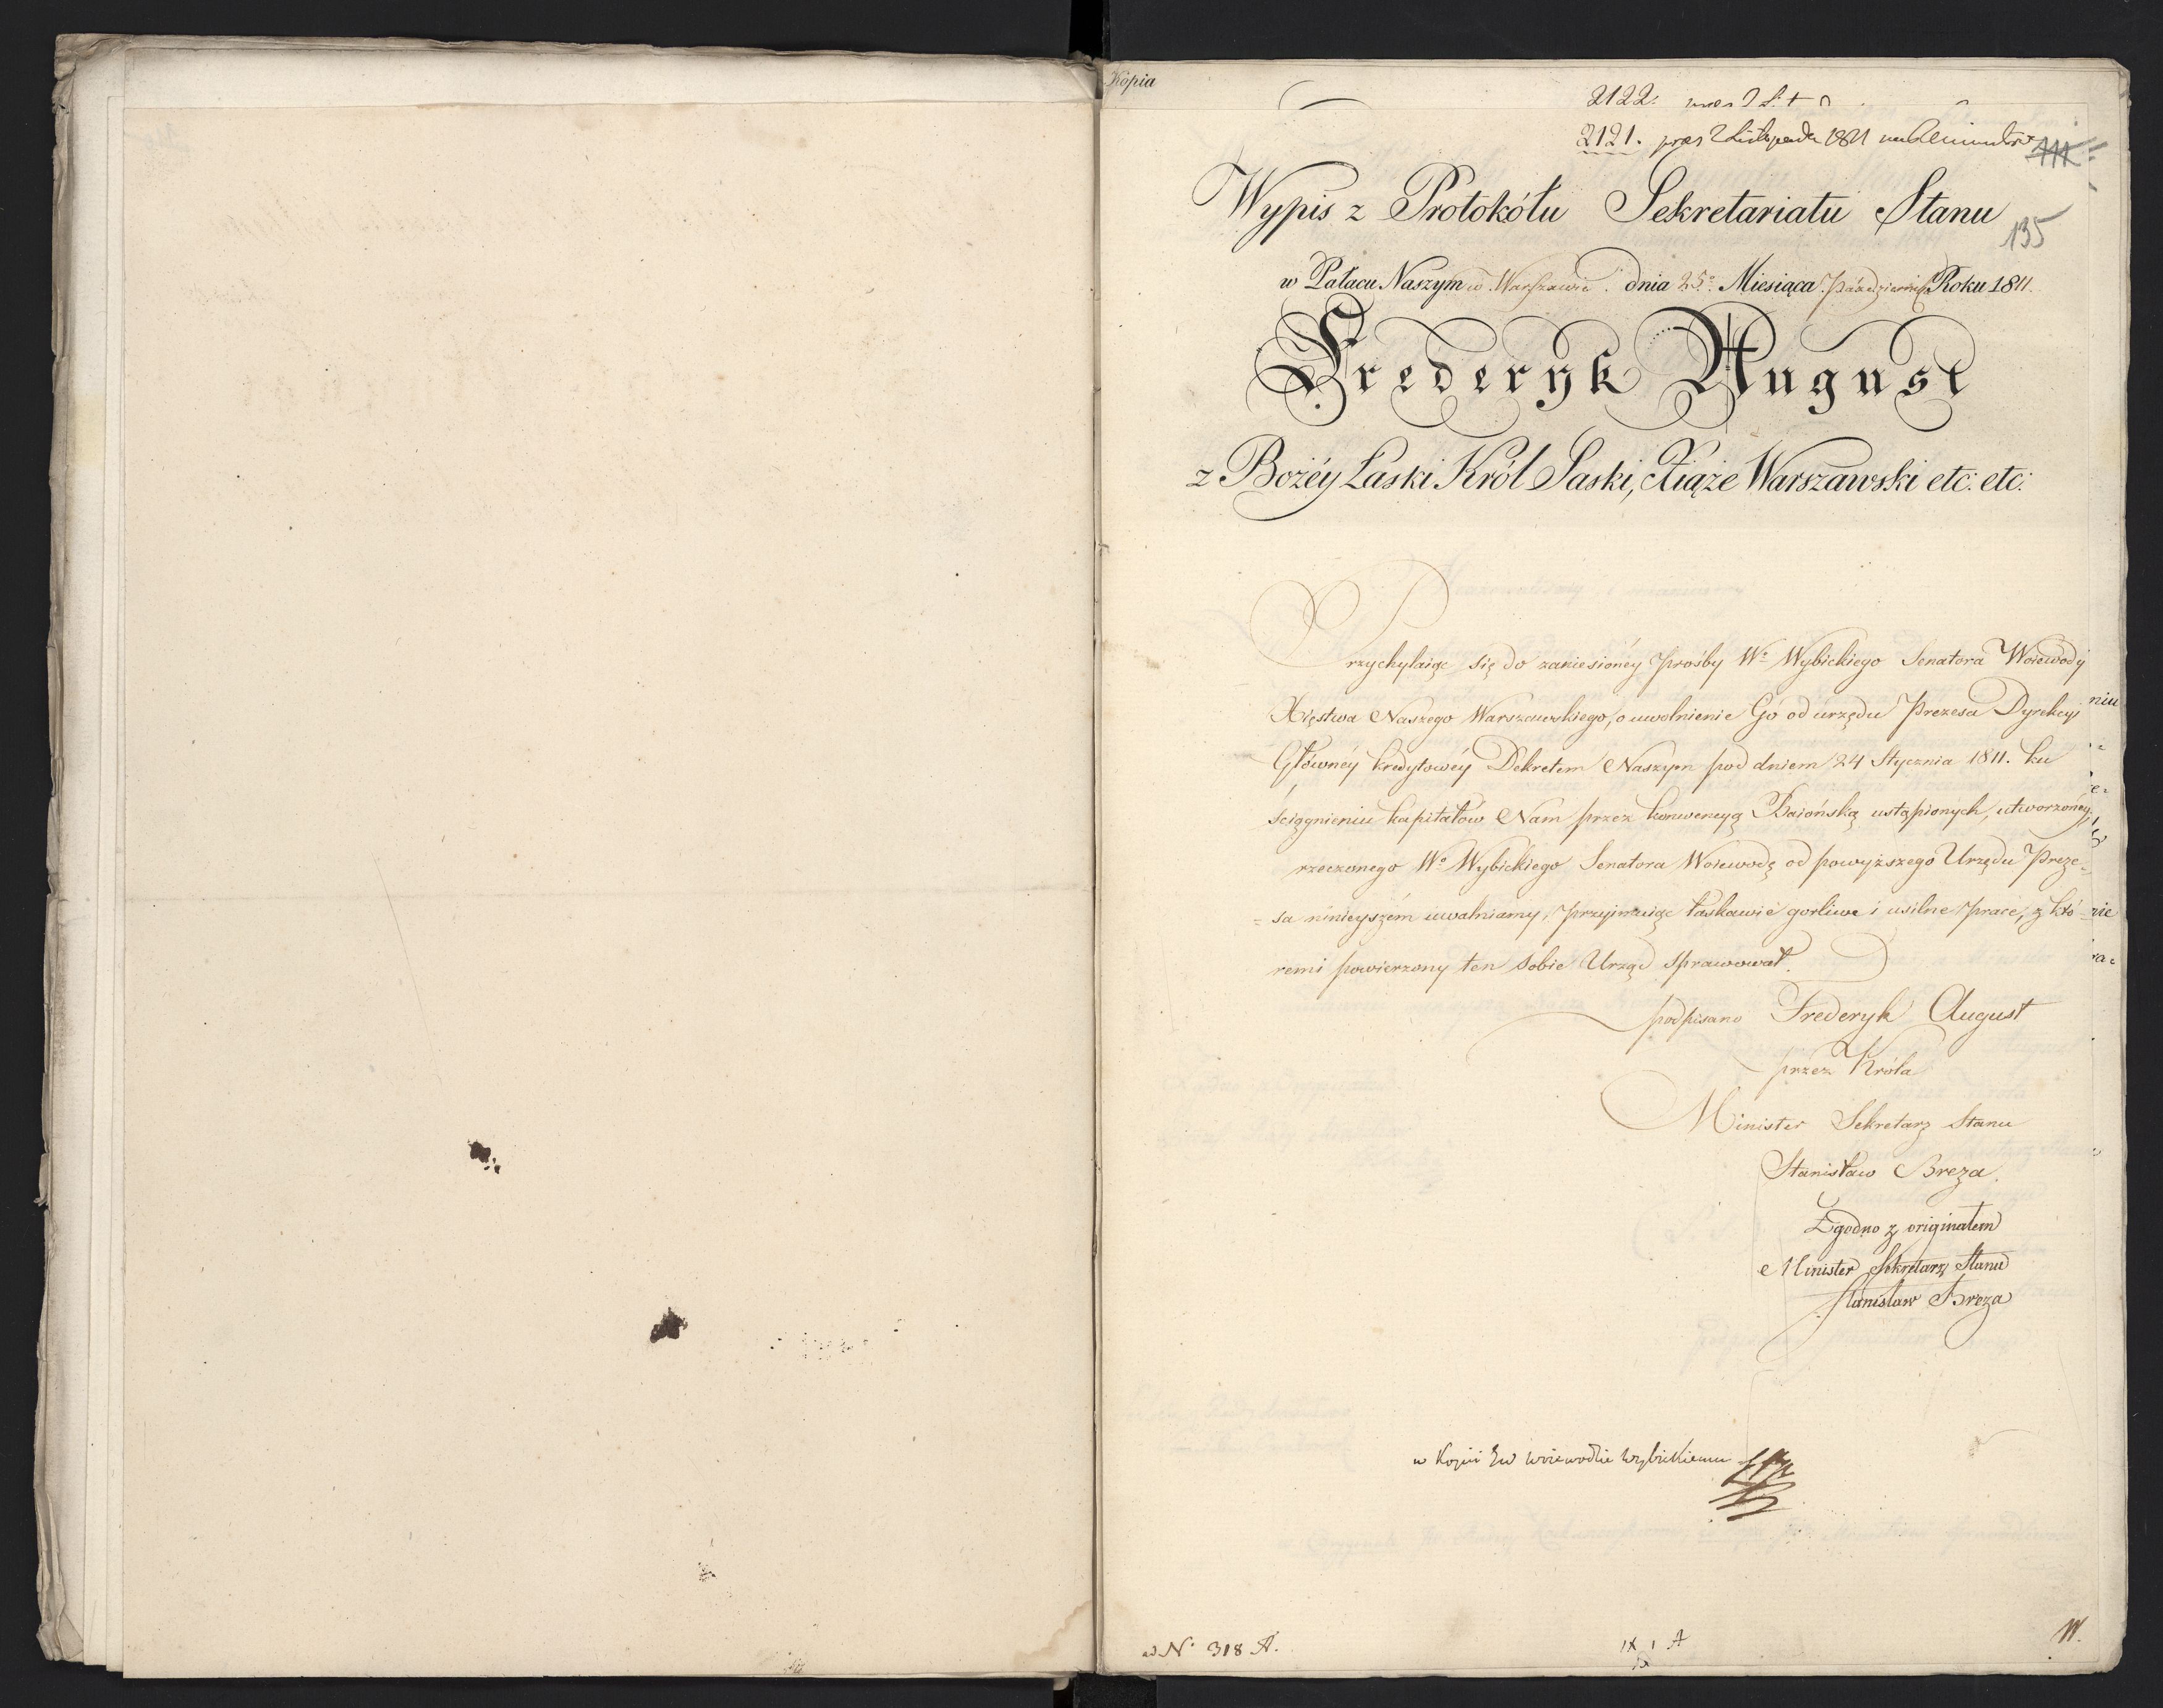 Kopia
2122.
2121. pras 2 Listopada 1811
135
Wypis z Protokółu Sekretariatu Stanu
w Pałacu Naszym w Warszawie. dnia 25° Miesiąca Październ: Roku 1811.
Frederyk August
z Bożéy Łaski Król Saski, Xiąże Warszawski etc: etc:
Przychylaiąc się do zaniesionéy prośby W° Wybickiego Senatora Woiewody
Xięstwa Naszego Warszawskiego, o uwolnienie Go od urzędu Prezesa Dyrekcyi
Głównéy kredytowéy Dekretem Naszym pod dniem 24 Stycznia 1811. ku
ściągnieniu kapitałów Nam przez konwencyą Baiońską ustąpionych, utworzonéy,
rzeczonego W° Wybickiego Senatora Woiewodę od powyższego Urzędu Preze-
-sa ninieyszém uwalniamy, przyimuiąc łaskawie gorliwe i usilne prace, z któ-
remi powierzony ten sobie Urząd sprawował.
podpisano Frederyk August
przez Króla
Minister Sekretarz Stanu
Stanisław Breza.
Zgodno z originałem
Minister Sekretarz Stanu
Stanisław Breza
w Kopii JW Woiewodzie Wybickiemu
ad N° 318 A.
IX 1 A
W.
niu
nie
ra-